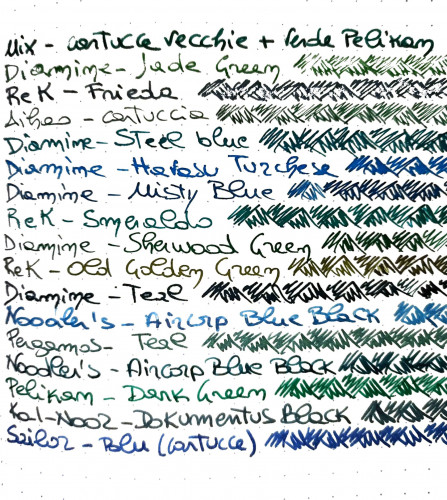 Mix - cartucce vecchie + Verde Pelikan
Diamine - Jade Green
R&K - Frieda
- cartuccia
Diamine - Steel blue
Diamine - Havasu Turchese
Diamine - Misty Blue
R&K - Smeraldo
Diamine - Sherwood Green
R&K - Old Golden Green
Diamine - Teal
Noodler's - Aircorp Blue Black
Pergamos - Teal
Noodler's - Aircorp Blue Black
Pelikan - Dark Green
Koh-I-Noor - Dokumentus Black
Sailor - Blu (cartucce)